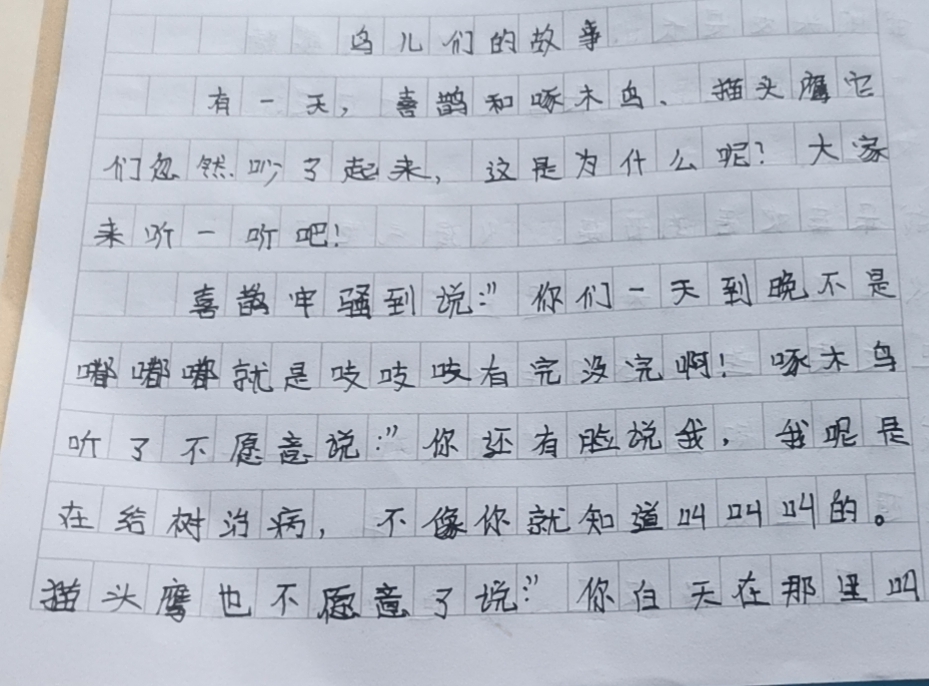 鸟儿们的故事
有一天，喜鹊和啄木鸟、猫头鹰它
们忽然吵了起来，这是为什么呢？大家
来听一听吧！
喜鹊牢骚到说：”你们一天到晚不是
嘟嘟嘟就是吱吱吱有完没完啊！啄木鸟
听了不愿意说：”你还有脸说我，我呢是
在给树治病，不像你就知道叫叫叫的。
猫头鹰也不愿意了说：”你白天在那里叫